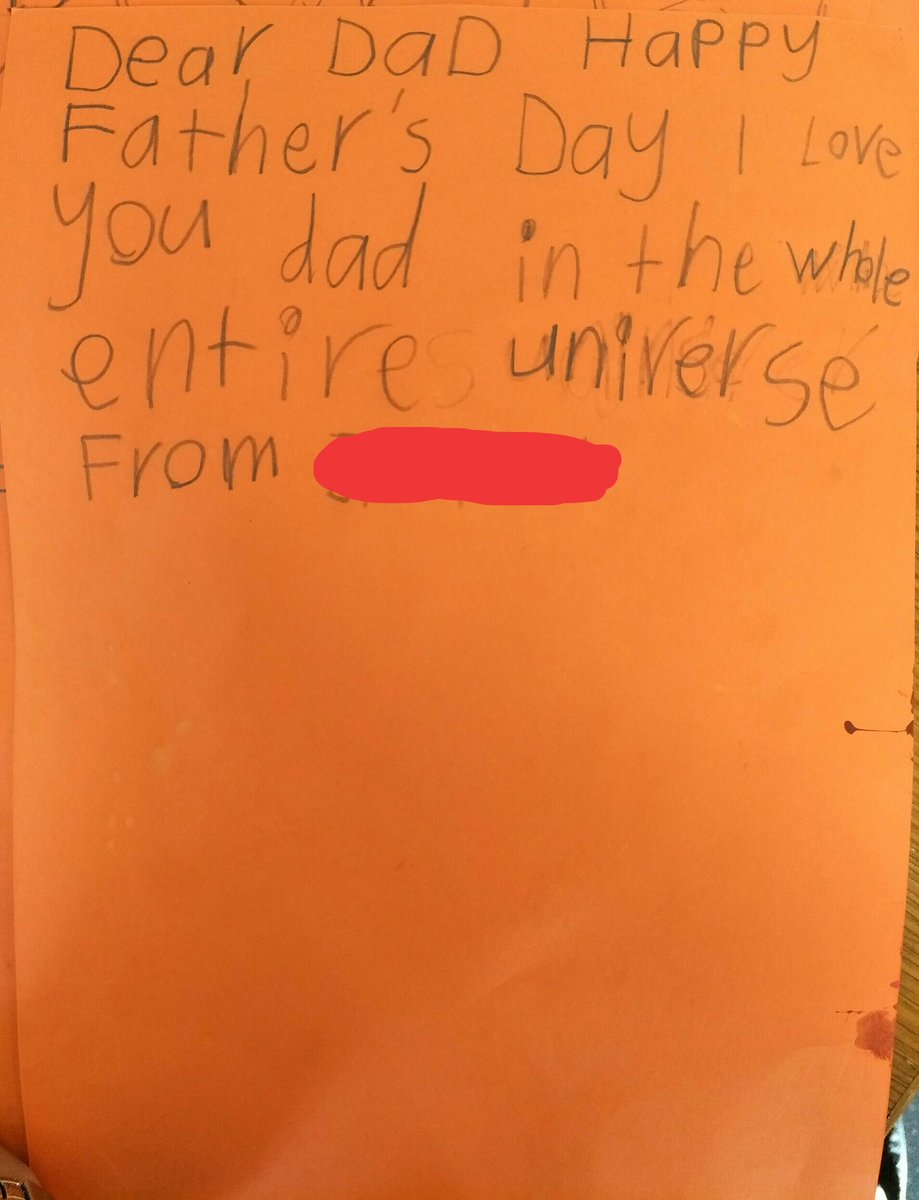 Dear DaD Happy
Father's Day I Love
you dad in the whole
entire universe
From